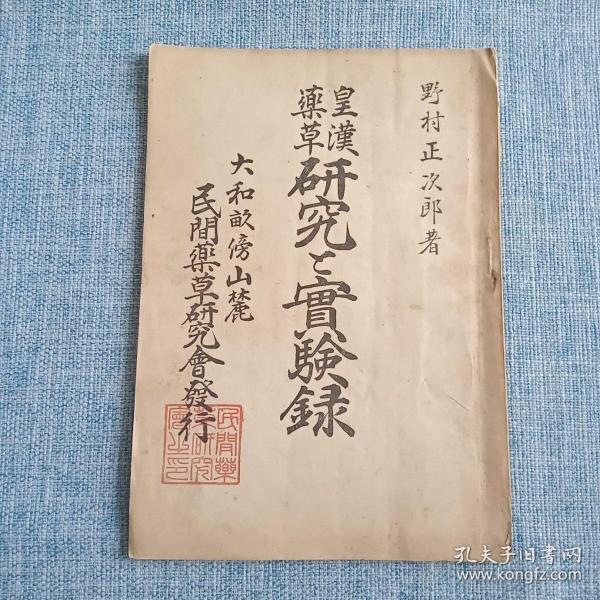 野村正次郎著
皇漢
薬草
研究と實験録
大和畝傍山麓
民間薬草研究會發行
民間藥
研究
會之印
孔夫子旧书网
www.kongfz.com